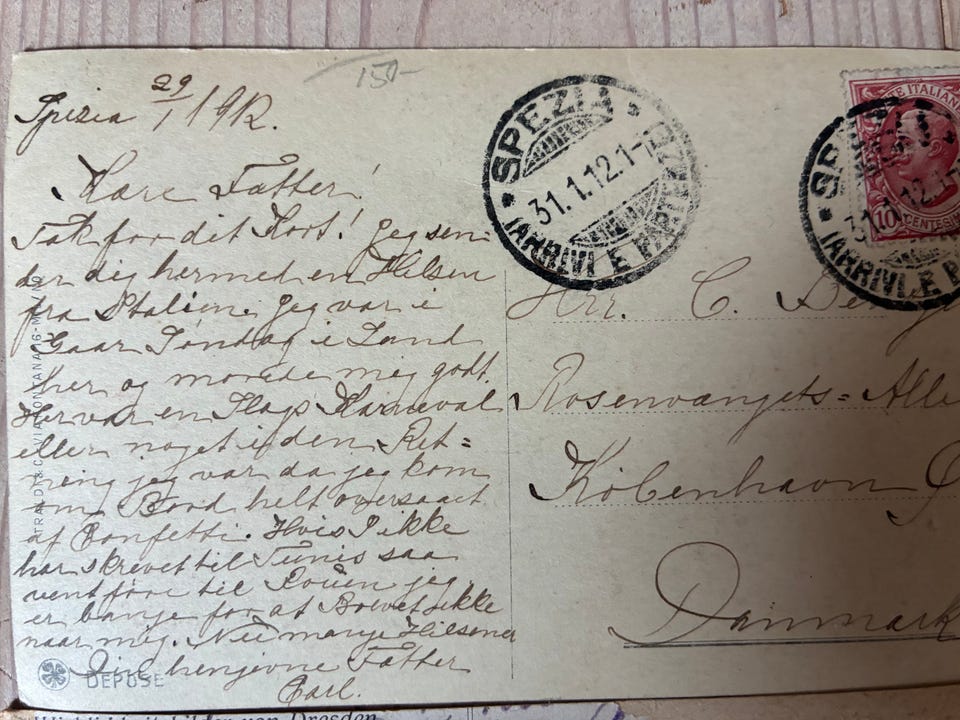 150-
Spezia 29/1 1912.
Kære Fatter!
Tak for dit Kort! Jeg sen-
der dig hermed en Hilsen
fra Italien. Jeg var i
Gaar Søndag i Land
her og morede mig godt.
Her var en Slags Karneval
eller noget i den Ret=
ning jeg var da jeg kom
om Bord helt oversaaet
af Confetti. Hvis I ikke
har skrevet til Tunis saa
vent före til Rouen jeg
er bange for at Brevet ikke
naar mig. Nu mange Hilsener
Din hengivne Fatter
Carl.
DEPOSE
SPEZIA
31.1.12.1-
(ARRIVI E PARTENZE)
SPEZIA
31.1.12.1-
(ARRIVI E P
TE ITALIANE
10 CENTESIMI
Hrr. C.
Rosenvængets=Alle
København Ø
Danmark
von Dresden